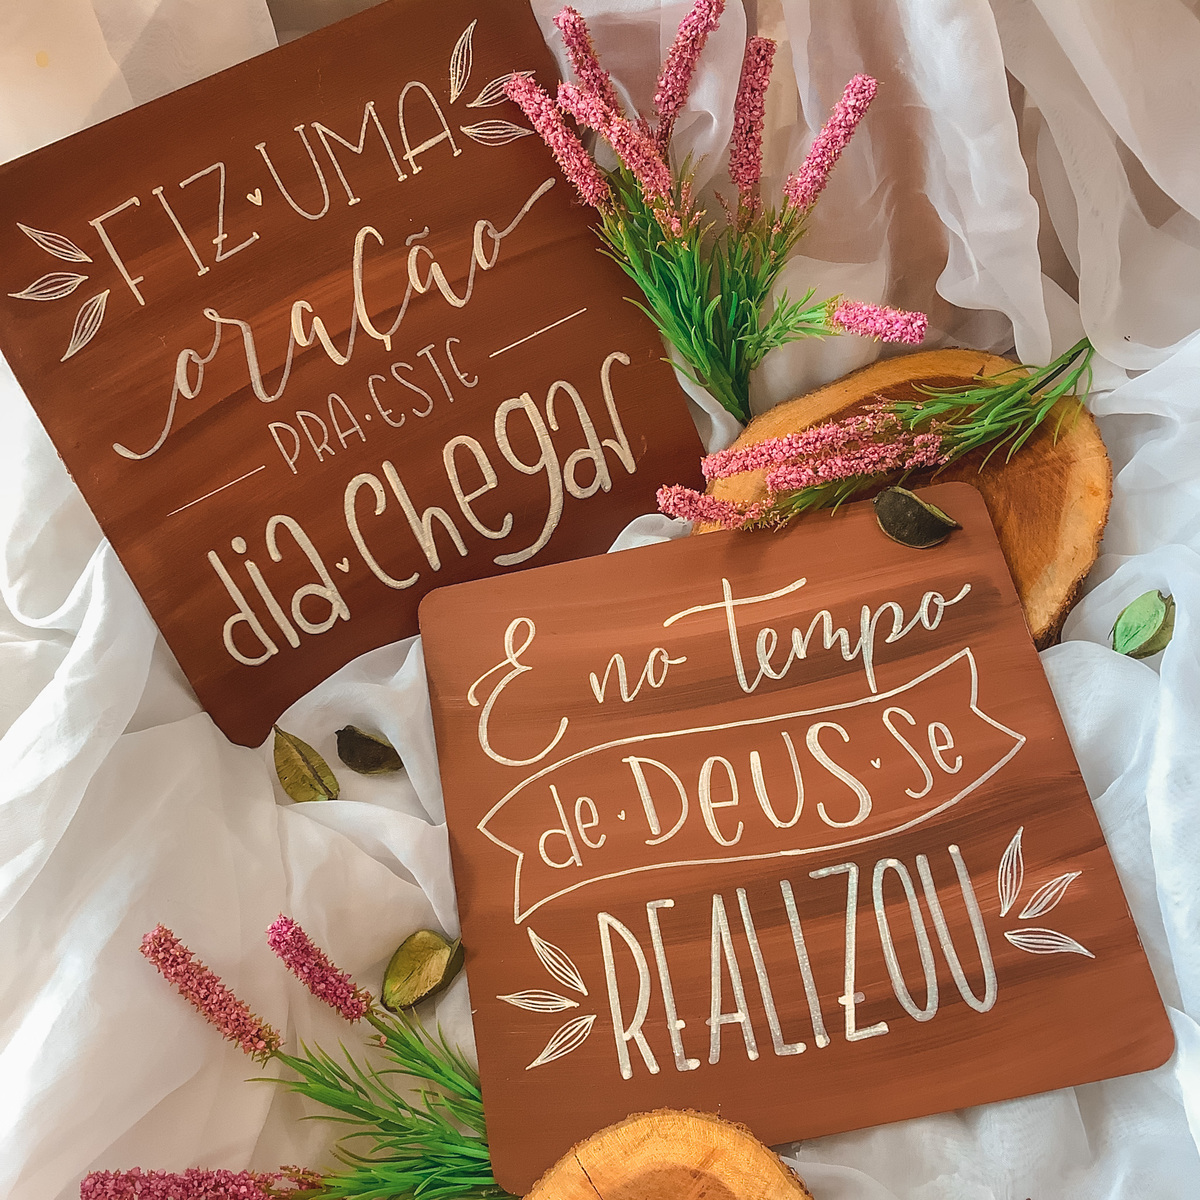 FIZ UMA
oração
PRA ESTE
dia chegar
E no tempo
de DEUS se
REALIZOU